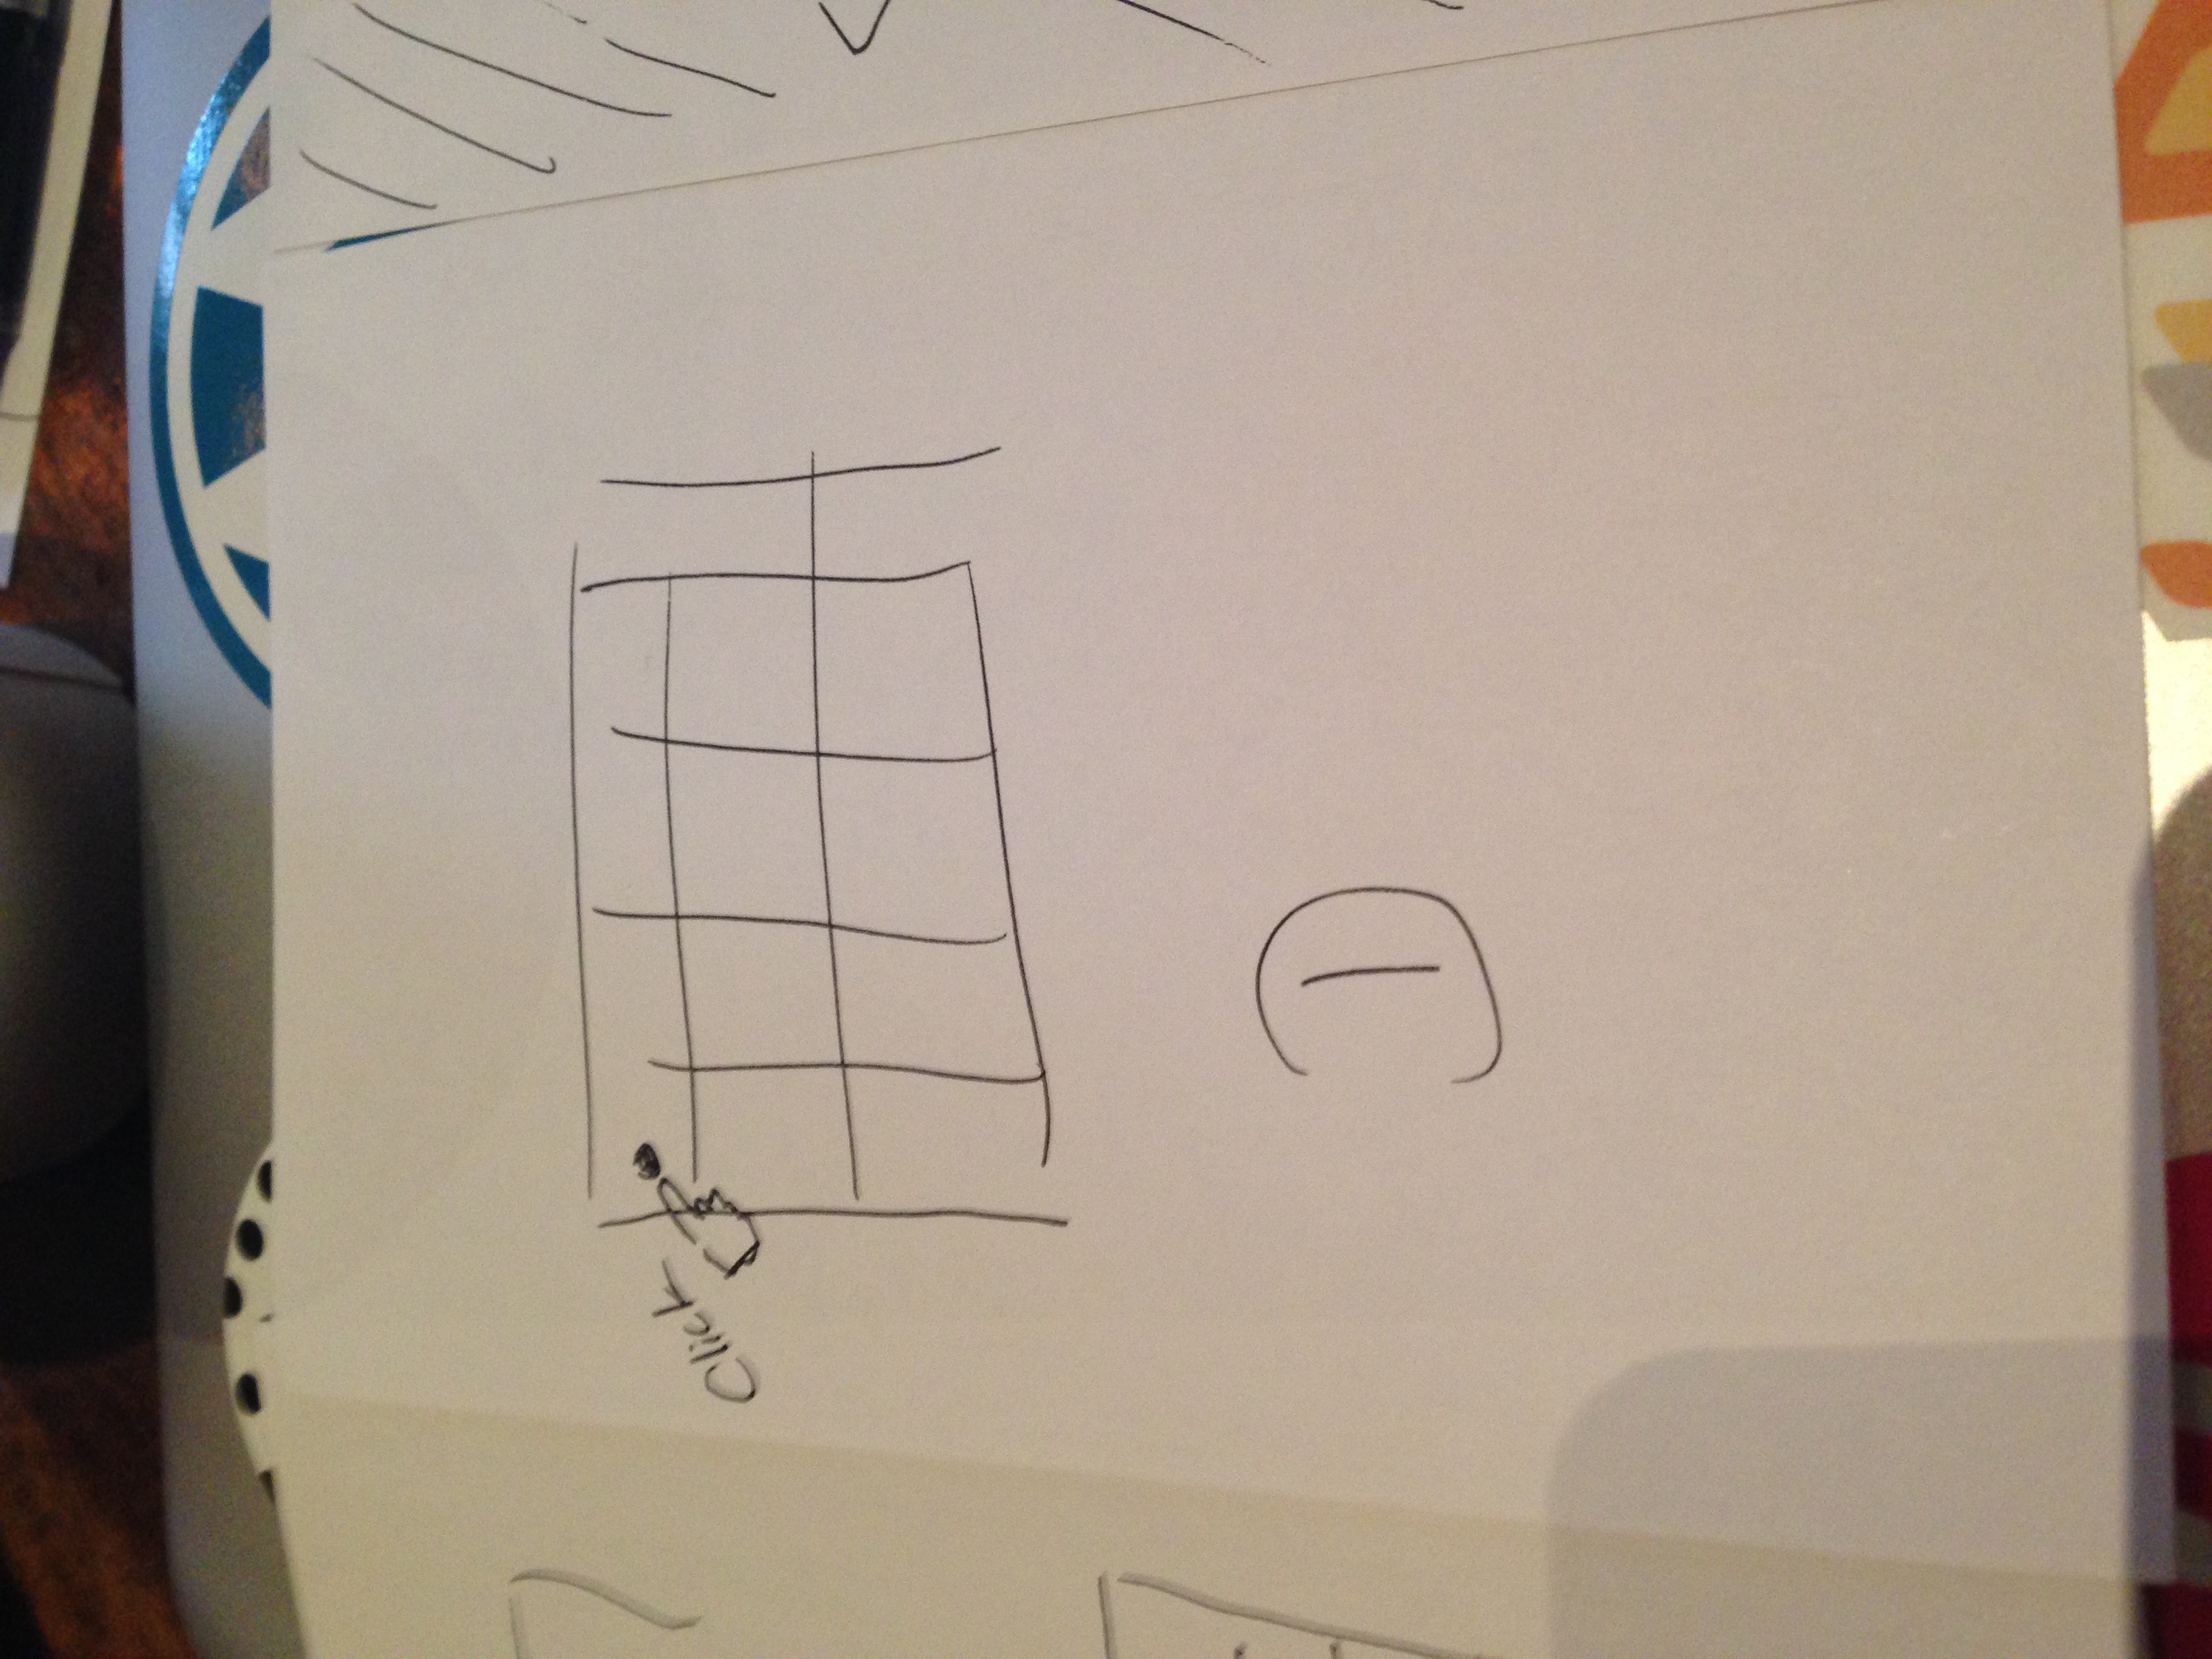 Click
1